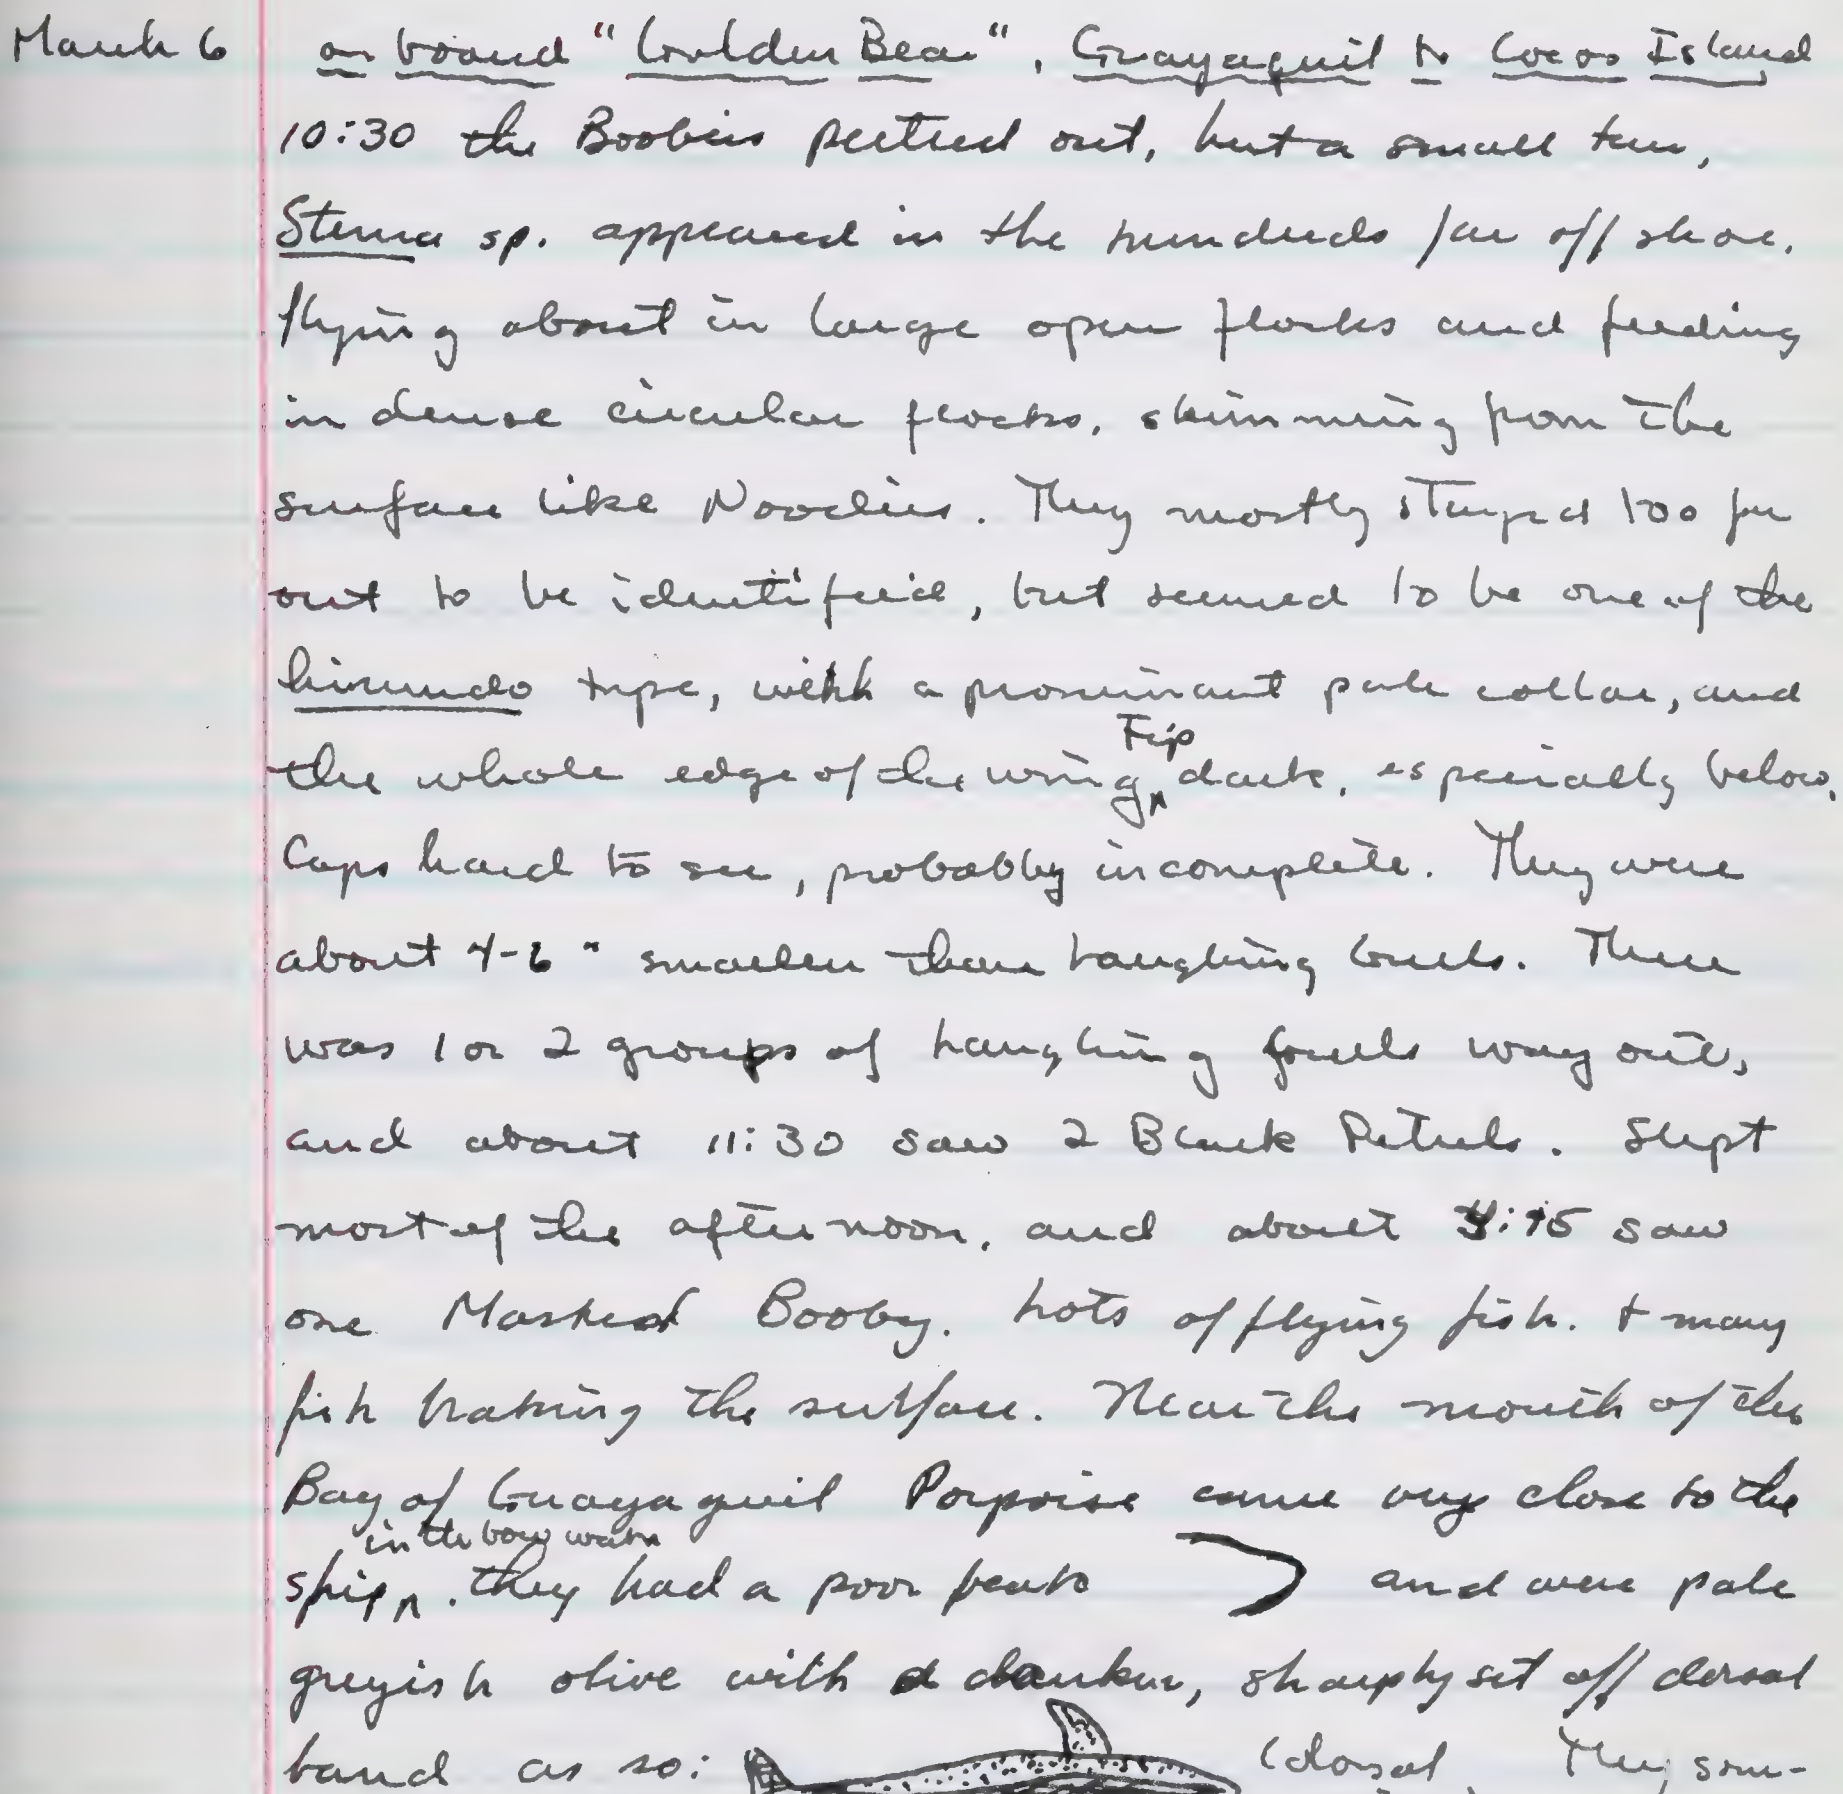 March 6 on board "Golden Bear", Guayaquil to Cocos Island
10:30 the Boobies petered out, but a small tern,
Sterna sp. appeared in the hundreds far off shore.
flying about in large open flocks and feeding
in dense circular flocks, skimming from the
surface like Noddies. They mostly stayed too far
out to be identified, but seemed to be one of the
hirundo type, with a prominant pale collar, and
Tip
the whole edge of the wing dark, especially below.
Caps hard to see, probably incomplete. They were
about 4-6" smaller than Laughing Gulls. There
was 1 or 2 groups of Laughing Gulls way out,
and about 11:30 saw 2 Black Petrels. Slept
most of the afternoon, and about :15 saw
one Masked Booby. Lots of flying fish. + many
fish breaking the surface. Near the mouth of the
Bay of Guayaquil Porpoise came very close to the
in the bow wave
ship. they had a poor beak and were pale
greyish olive with a darker, sharply set off dorsal
band as so: (dorsal They som-